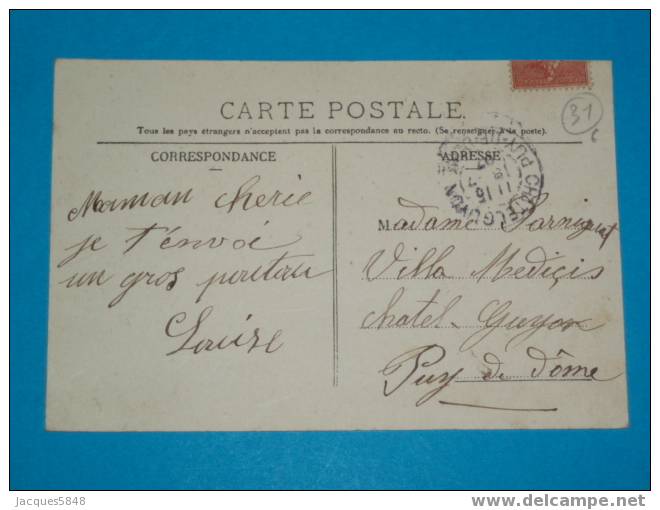 CARTE POSTALE.
Tous les pays étrangers n'acceptent pas la correspondance au recto. (Se renseigner à la poste).
CORRESPONDANCE
ADRESSE
Maman cherie
je t'envoi
un gros poutou
Louise
Madame
Villa Medicis
Chatel-Guyon
Puy de dôme
CHATELGUYON
PUY-DE-DOME
31
Jacques5848
delcampe.net